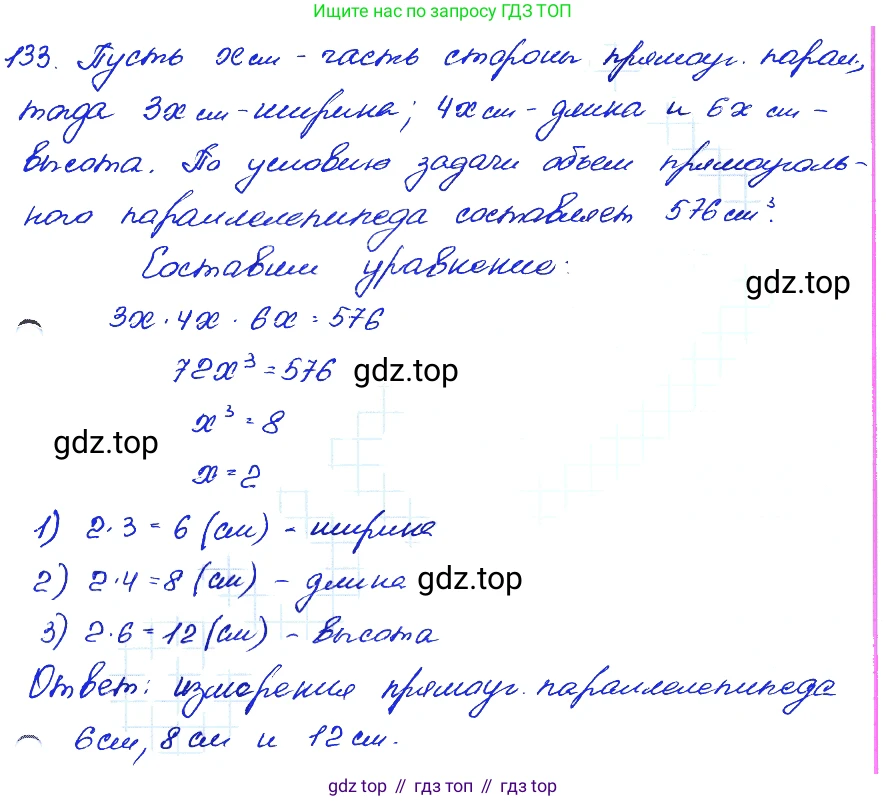 Ищите нас по запросу ГДЗ ТОП
133. Пусть x см - часть стороны прямоуг. парал,
тогда 3x см - ширина; 4x см - длина и 6x см -
высота. По условию задачи объем прямоуголь-
ного параллелепипеда составляет 576 см³.
Составим уравнение:
gdz.top
3x · 4x · 6x = 576
72x³ = 576 gdz.top
x³ = 8
gdz.top
x = 2
1) 2·3 = 6 (см) - ширина
2) 2·4 = 8 (см) - длина gdz.top
3) 2·6 = 12 (см) - высота
Ответ: измерения прямоуг. параллелепипеда
6 см, 8 см и 12 см.
gdz top // гдз топ // gdz top